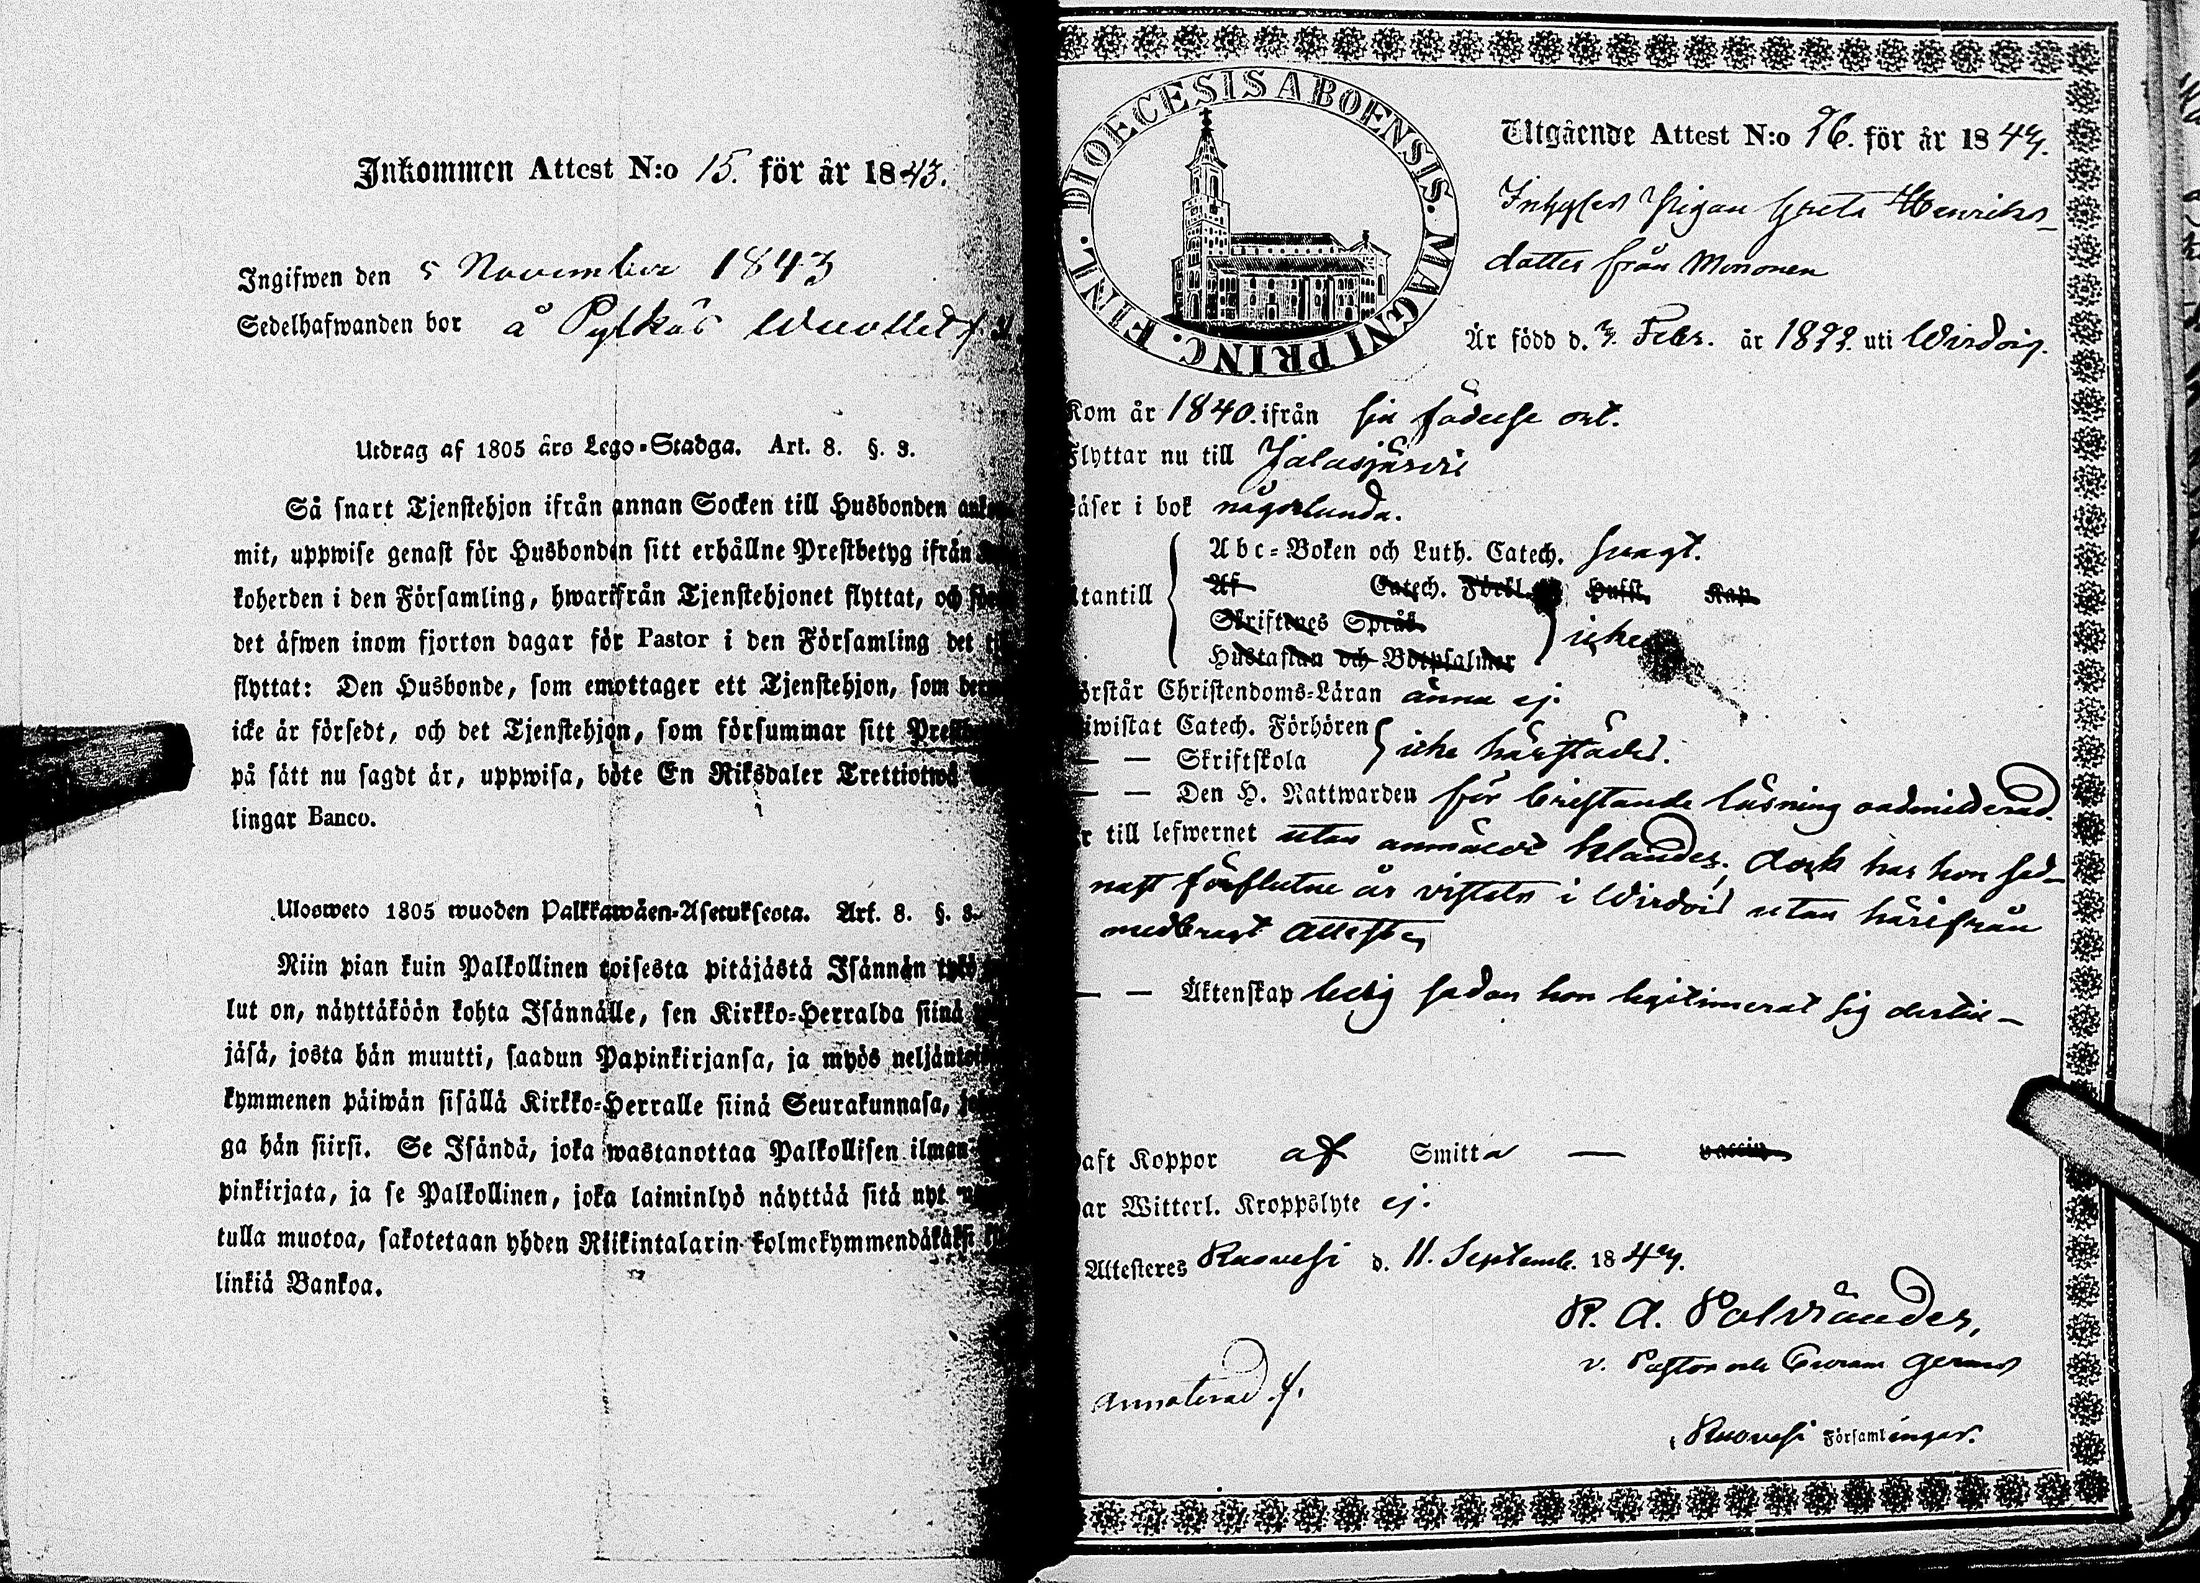 Inkommen Attest N:o 15. för år 1843.
Ingifwen den 5 November 1843
Sedelhafwanden bor å Pylkäs
Utdrag af 1805 års Lego-Stadga. Art. 8. §. 3.
Så snart Tjenstehjon ifrån annan Socken till Husbonden
mit, uppwise genast för Husbonden sitt erhållne Prestbetyg ifrån
koherden i den Församling, hwarifrån Tjenstehjonet flyttat, och
det äfwen inom fjorton dagar för Pastor i den Församling det
flyttat: Den Husbonde, som emottager ett Tjenstehjon, som
icke är försedt, och det Tjenstehjon, som försummar sitt
på sätt nu sagdt är, uppwisa, böte En Riksdaler Trettiotwå
lingar Banco.
Ulosweto 1805 wuoden Palkkawäen-Asetuksesta. Art. 8. §. 3.
Niin pian kuin Palkollinen toisesta pitäjästä Isännän tykö
lut on, näyttäköön kohta Isännälle, sen Kirkko-Herralda siinä
jäsä, josta hän muutti, saadun Papinkirjansa, ja myös
kymmenen päiwän sisällä Kirkko-Herralle siinä Seurakunnasa,
ga hän siirsi. Se Isändä, joka wastanottaa Palkollisen ilman
pinkirjata, ja se Palkollinen, joka laiminlyö näyttää sitä nyt
tulla muotoa, sakotetaan yhden Riikintalarin kolmekymmendäkaksi
linkiä Bankoa.
DIOECESIS ABOENSIS. MAGNI PRINC. FINL.
Utgående Attest N:o 76. för år 1843.
Inhyses Pigan Greta Henriks-
dotter från Mononen
Är född d. 3. Febr. år 1822. uti Wirdois.
Kom år 1840. ifrån sin födelse ort.
Flyttar nu till Jalasjärvi
Läser i bok någorlunda.
Utantill Abc-Boken och Luth. Catech. svagt.
Af Catech. Förkl. Hufst. Kap.
Skriftenes Språk icke
Hustaflan och Botpsalmer
Förstår Christendoms-Läran ännu ej.
Biwistat Catech. Förhören icke härstädes.
— — Skriftskola
— — Den H. Nattwarden för bristande läsning oadmitterad.
Är till lefwernet utan anmäldt klander, dock har hon sed-
nast förflutne år vistats i Wirdois utan härifrån
medbragt Attest
— — Äktenskap ledig sedan hon legitimerat sig dertill—
Haft Koppor af Smitta — vaccin
Har Witterl. Kroppslyte ej.
Attesteres Ruovesi d. 11. Septemb. 1843.
R. A. Polviander,
v. Pastor
Annoterad
i Ruovesi Församlingar.